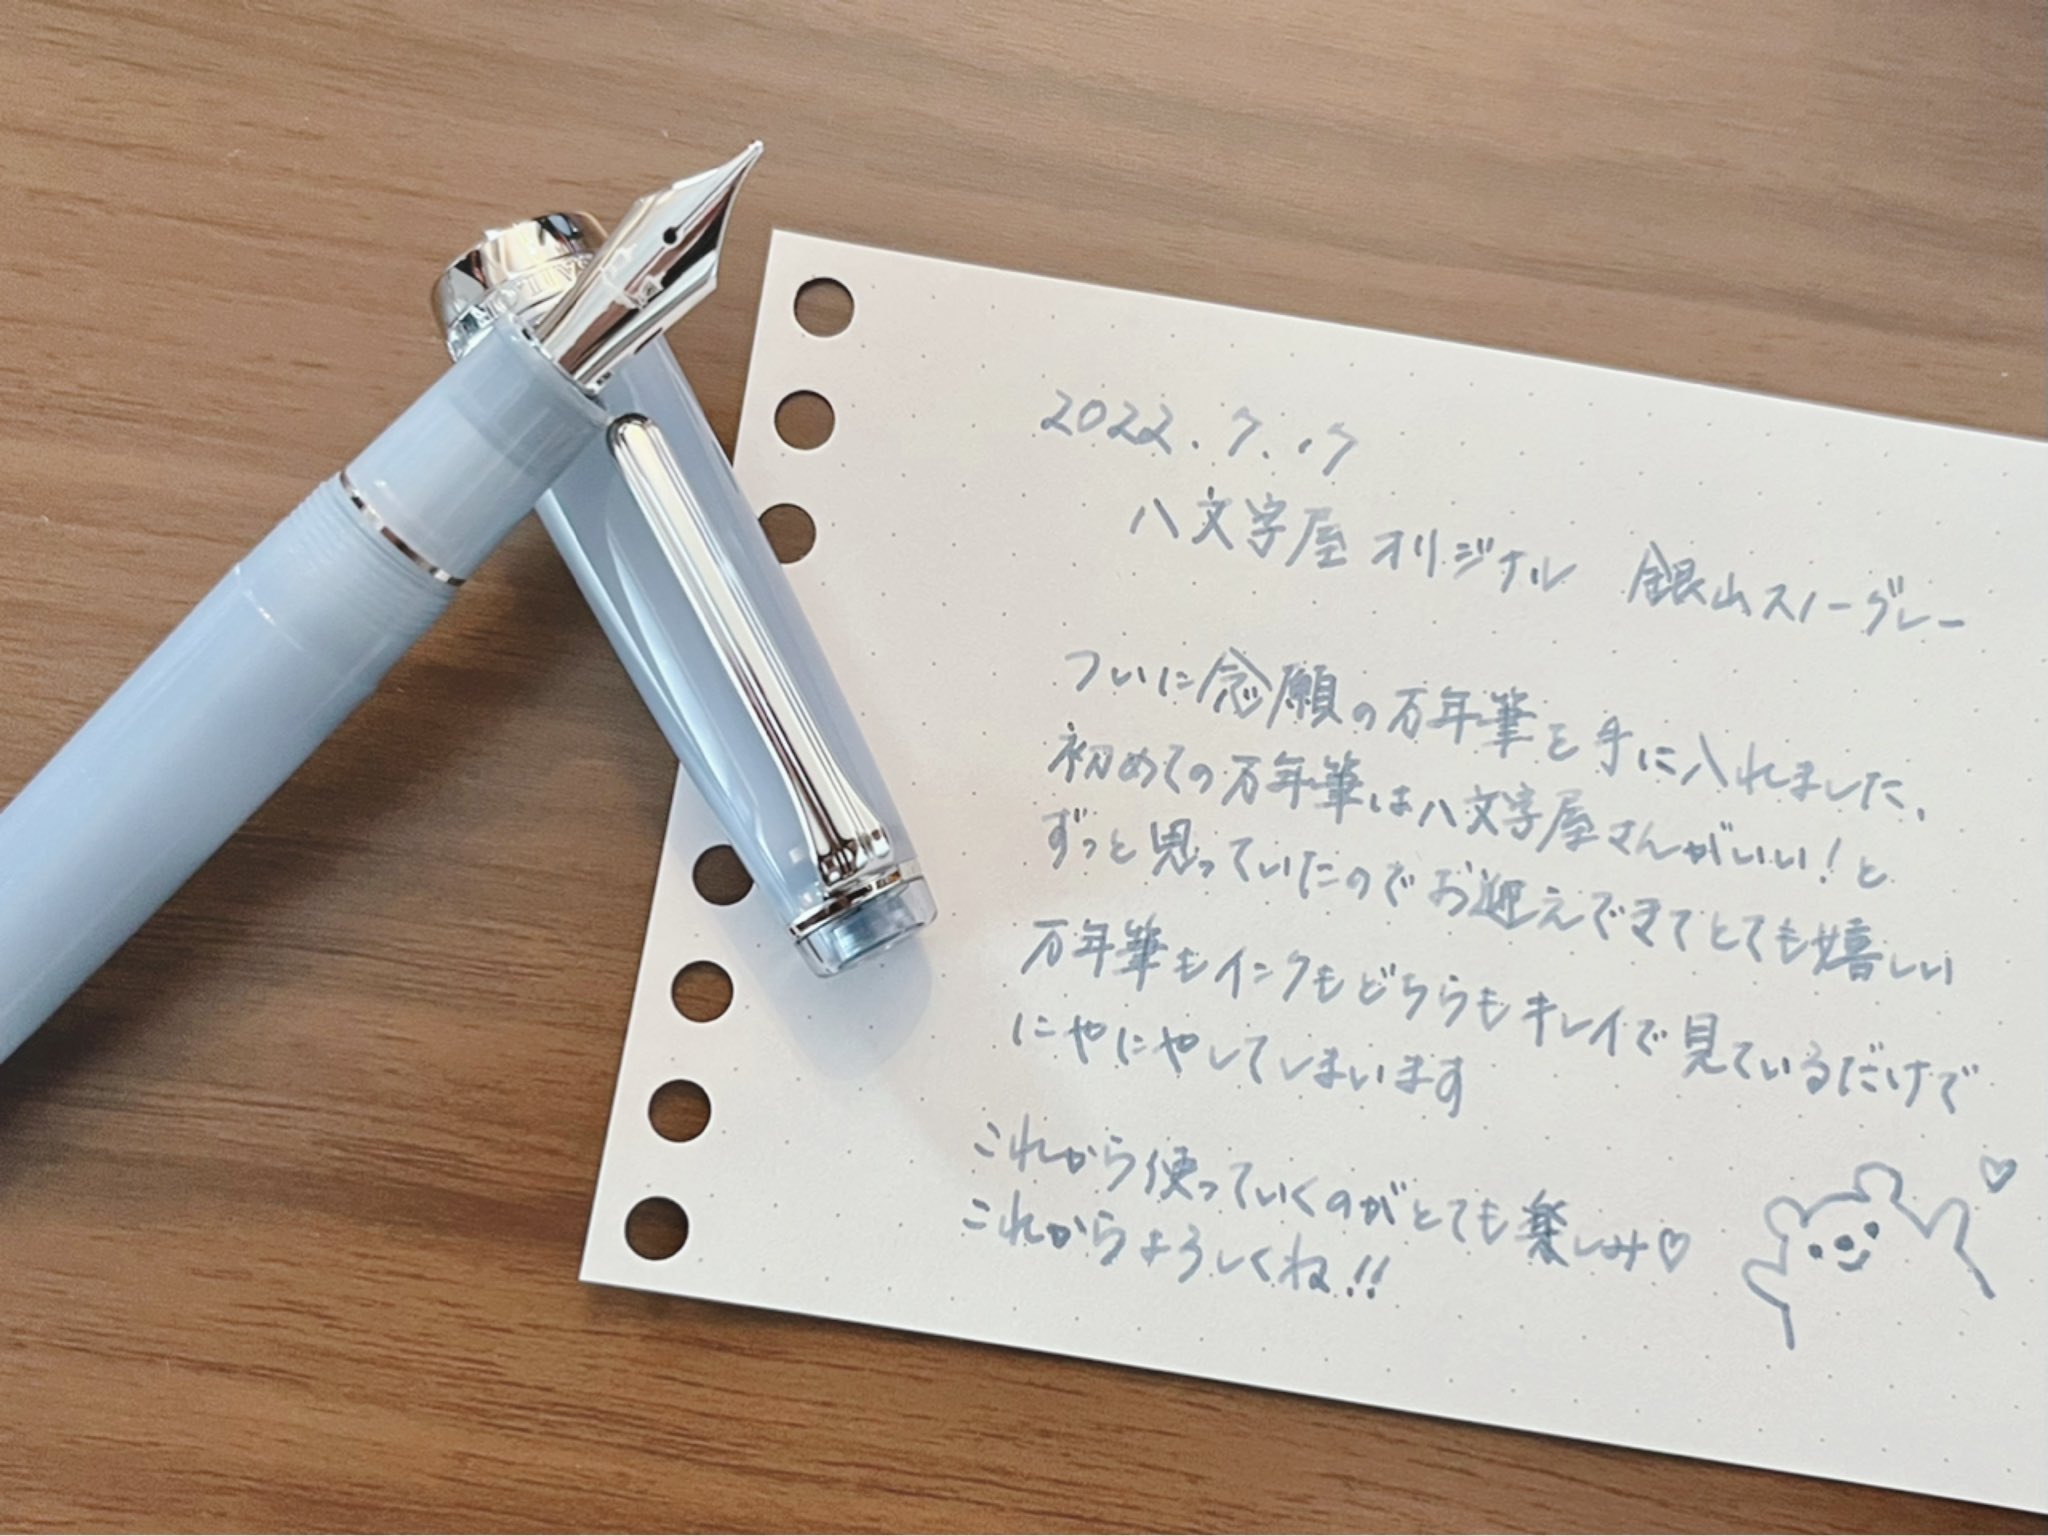 2022.7.17
八文字屋オリジナル 銀山スノーグレー
ついに念願の万年筆を手に入れました、
初めての万年筆は八文字屋さんがいい！と
ずっと思っていたのでお迎えできてとても嬉しい
万年筆もインクもどちらもキレイで見ているだけで
にやにやしてしまいます
これから使っていくのがとても楽しみ♡
これからよろしくね!!